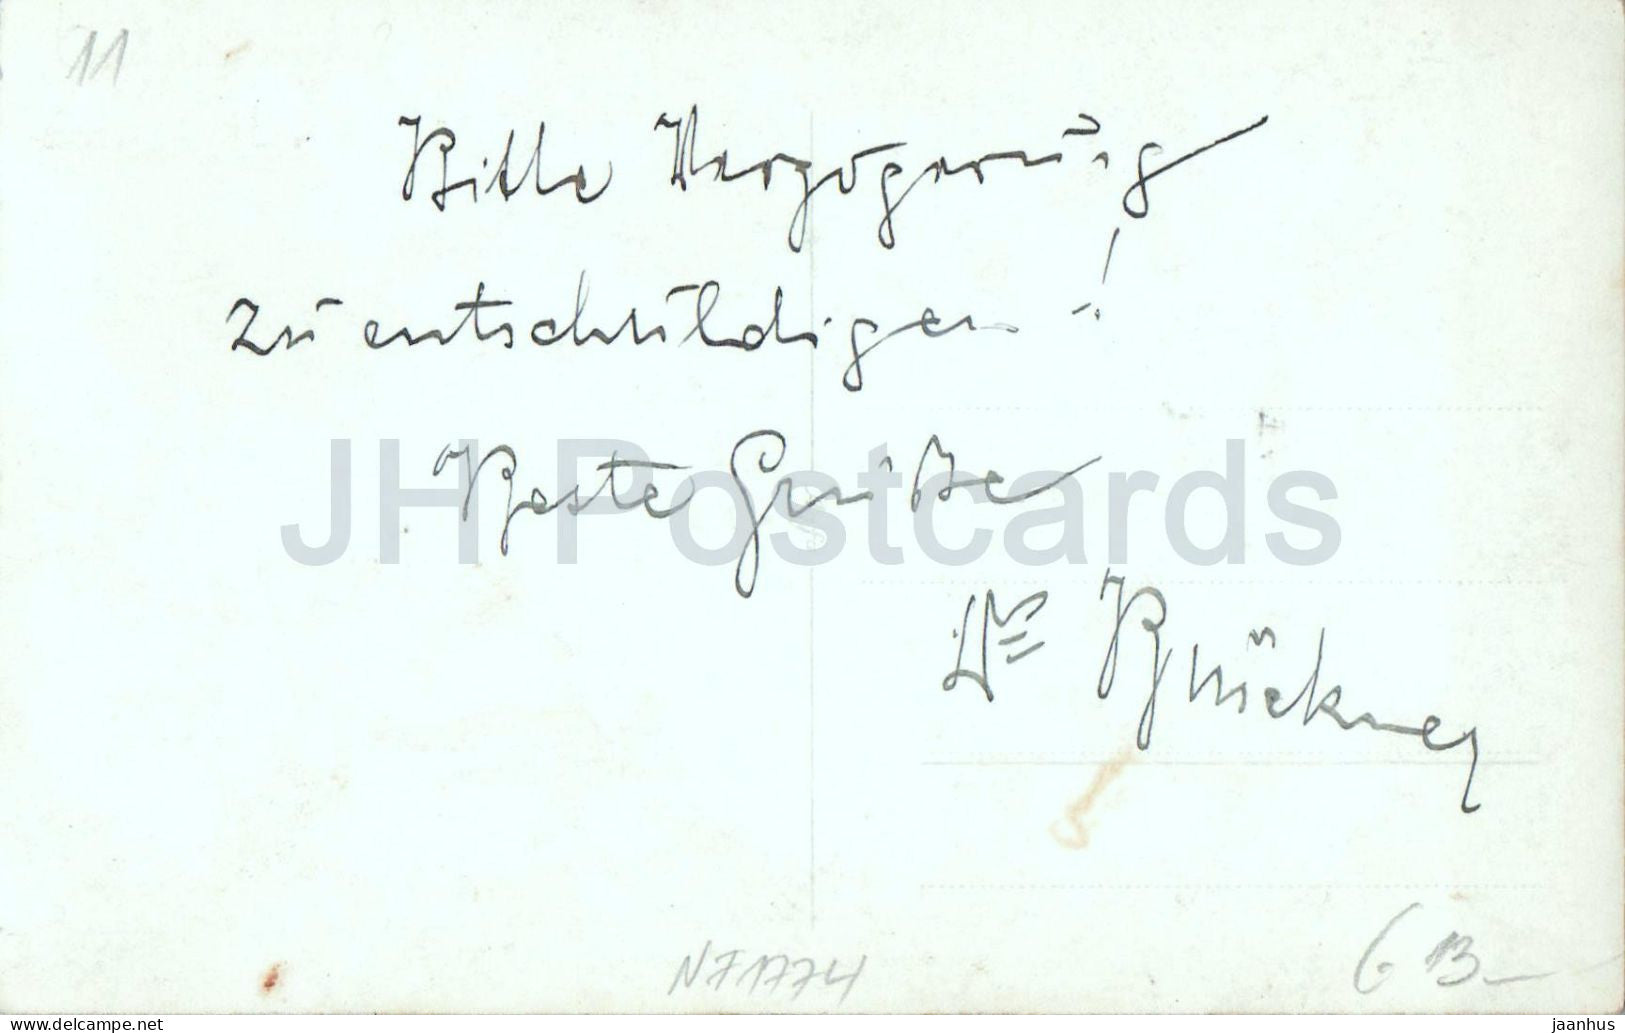 11
Bitte Verzögerung
zu entschuldigen!
Beste Grüße
Dr Brückner
JH Postcards
N71774
6 B-
www.delcampe.net
jaanhus